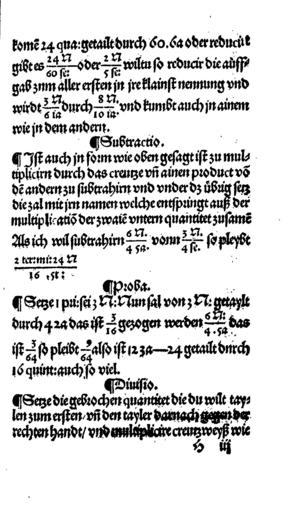 komē 24 qua: getailt durch 60.6a oder reducir
gibt es 24 N/60 se: oder 2 N/5 se: wiltu so reducir die auff-
gab znm aller ersten in jre klainst nennung vnd
wirdt 3 N/6 ia durch 8 N/10 ia. vnd kumbt auch in ainem
wie in dem andern.
¶Subtractio.
¶Ist auch in form wie oben gesagt ist zu mul-
tiplicirn durch das creutze vn̄ ainen product vō
dē andern zu subtrahirn vnd vnder dz übrig setz
die zal mit jrn namen welche entspringt auß der
multiplicatiō der zwaiē vntern quantitet zusamē
Als ich wil subtrahirn 6 N/4 5a. vonn 3 N./4 se. so pleybt
2 ter: mi: 24 N/16 .5t:
¶Proba.
¶Setze 1 pri: sei 3 N: Nun sal von 3 N: getaylt
durch 4 2a das ist 3/64 gezogen werden 6 N:/4 .5a das
ist 3/64 so pleibt 9/64 also ist 12 3a—24 getailt dnrch
16 quint: auch so viel.
¶Diuisio.
¶Setze die gebrochen quantitet die du wilt tay-
len zum ersten/ vn̄ den tayler darnach gegen der
rechten handt/ vnd multiplicire creutzweyß wie
h iij